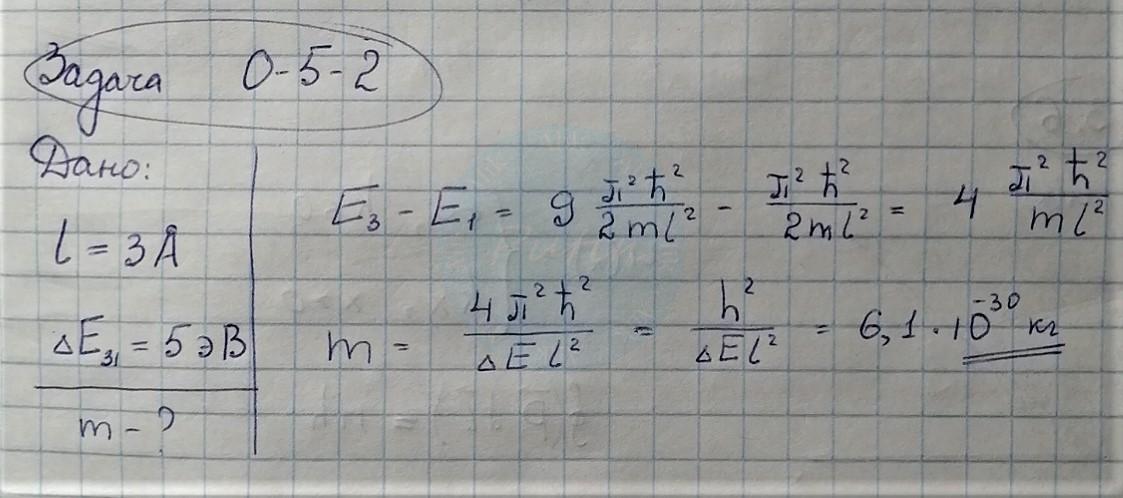 Задача 0-5-2
Дано:
l = 3 Å
ΔE₃₁ = 5 эВ
m - ?
E₃ - E₁ = 9 π²ħ²/2ml² - π²ħ²/2ml² = 4 π²ħ²/ml²
m = 4π²ħ²/ΔEl² = h²/ΔEl² = 6,1 · 10⁻³⁰ кг